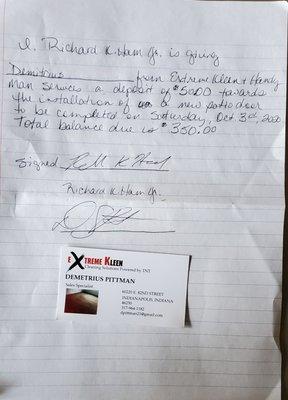 I, Richard K. Ham Jr. is giving
Demetrius from Extreme Kleen & Handy
Man Services a deposit of $50.00 towards
the installation of a new patio door
to be completed on Saturday, Oct 3rd, 2020
Total balance due is $350.00
Signed
Richard K. Ham Jr.
EXTREME KLEEN
Cleaning Solutions Powered by TNT
DEMETRIUS PITTMAN
Sales Specialist
INDIANAPOLIS, INDIANA
46250
317-964-1182